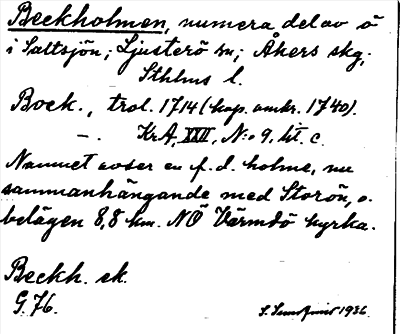 Beckholmen, numera del av ö
i Saltsjön; Ljusterö sn; Åkers skg,
Sthlms l.
Bock., trol. 1714 (kop. omkr. 1740).
—. KrA, XXII, N:o 9, lit. c.
Namnet avser en f. d. holme, nu
sammanhängande med Storön, o.
belägen 8,8 km. NÖ Värmdö kyrka.
Beckh. sk.
G. 76.
1936.